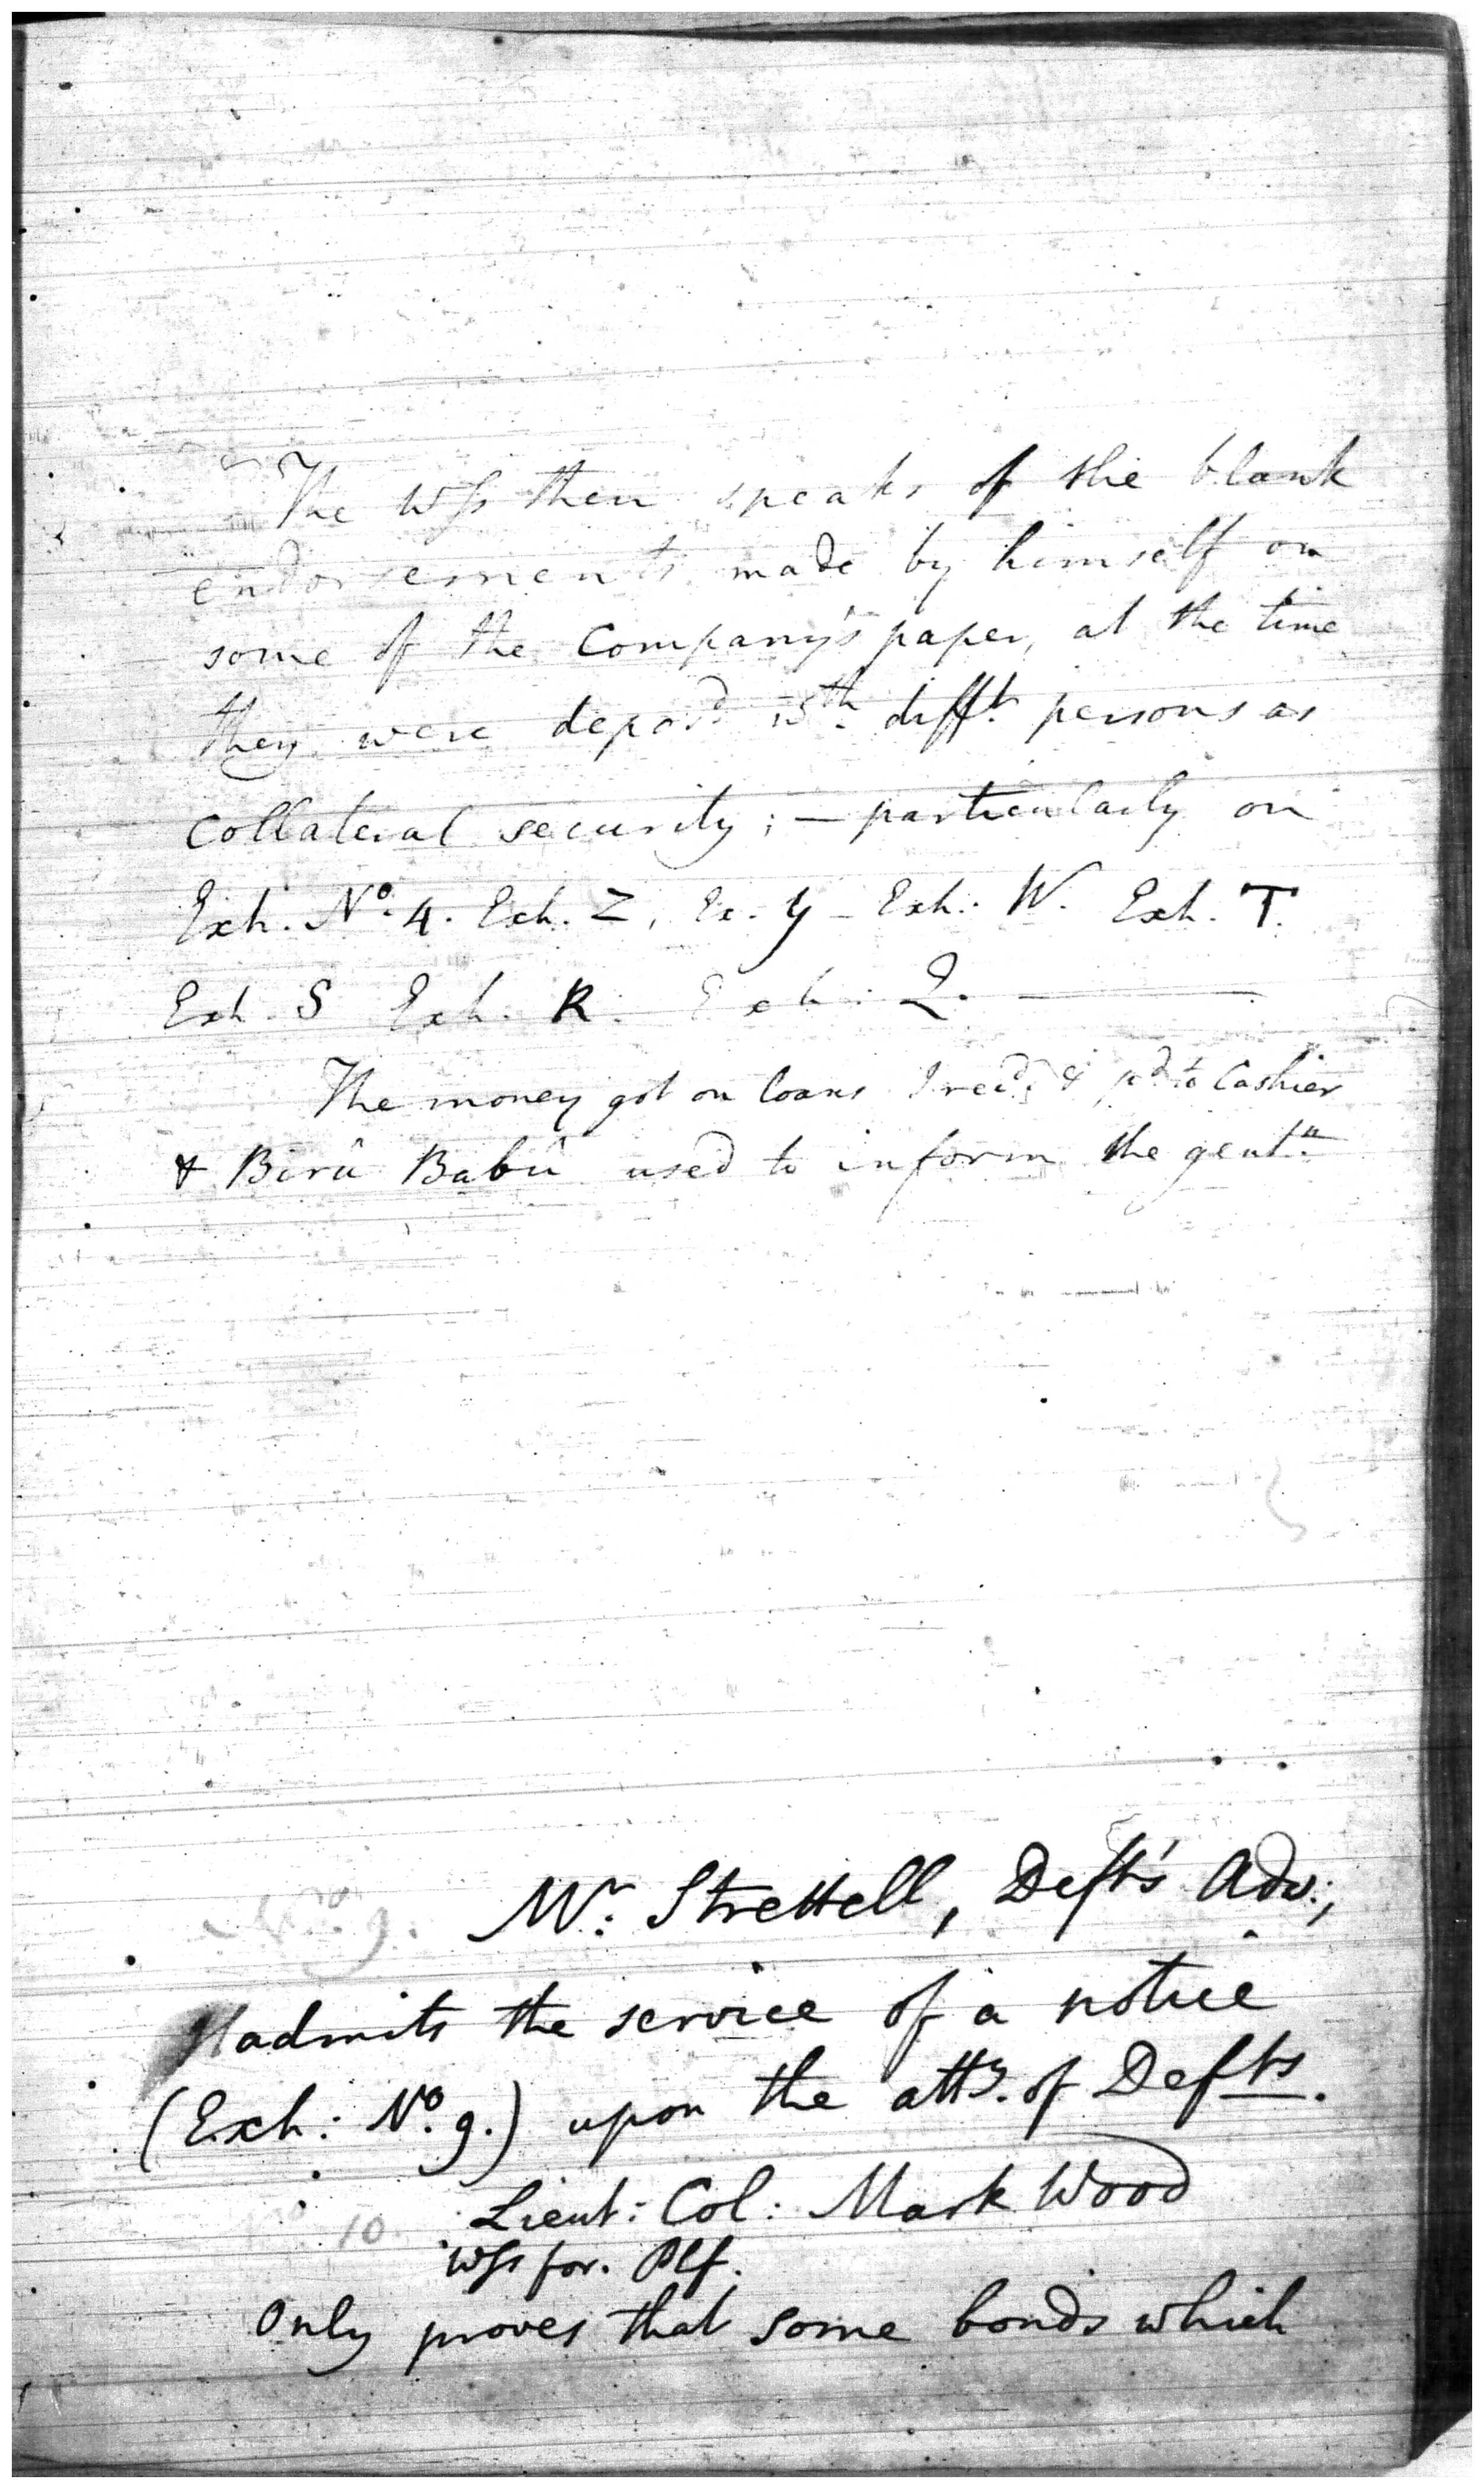 The Wss then speaks of the blank
endorsements made by himself on
some of the Company's paper, at the time
they were depos'd wth difft persons as
Collateral security; — particularly on
Exh. No. 4. Exh. Z, Ex. Y — Exh: W. Exh. T.
Exh. S Exh. R. Exh: Q. —
The money got on loans I recd, & pd to Cashier
& Birû Babû used to inform the gentn.
No. 9. Mr: Strettell, Deft's Adv:,
admits the service of a notice
(Exh: No. 9.) upon the atty. of Defts.
10. Lieut: Col: Mark Wood
Wss for. Plf.
Only proves that some bonds which